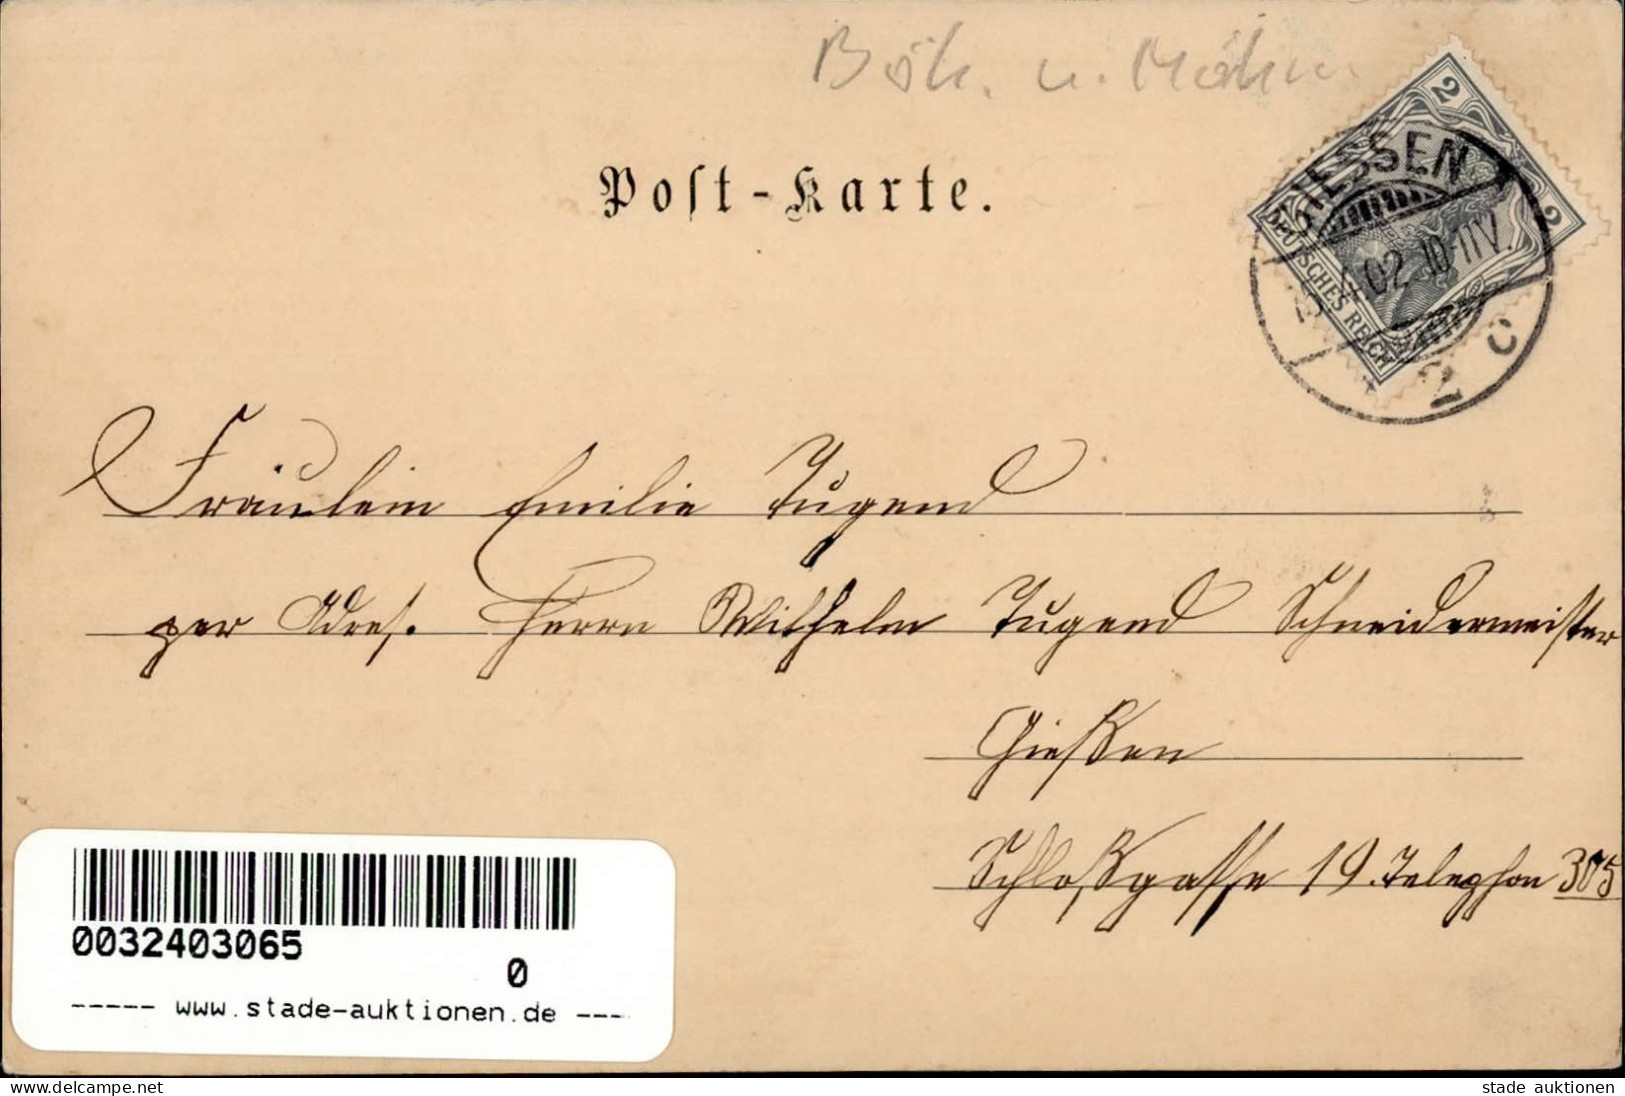 Böh. u. Mähr.
Post-Karte.
2
2
DEUTSCHES REICH
GIESSEN
02. 10-11V.
Fräulein Emilie Tugend
per Adres. Herrn Wilhelm Tugend Schneidermeister
Gießen
Schloßgasse 19. Telephon 305
0032403065
0
----- www.stade-auktionen.de ----
delcampe.net
stade auktionen